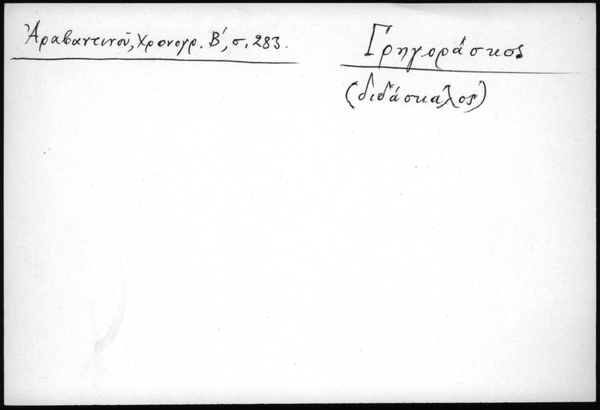 Ἀραβαντινοῦ, Χρονογρ. Β', σ. 283.
Γρηγοράσκος
(διδάσκαλος)